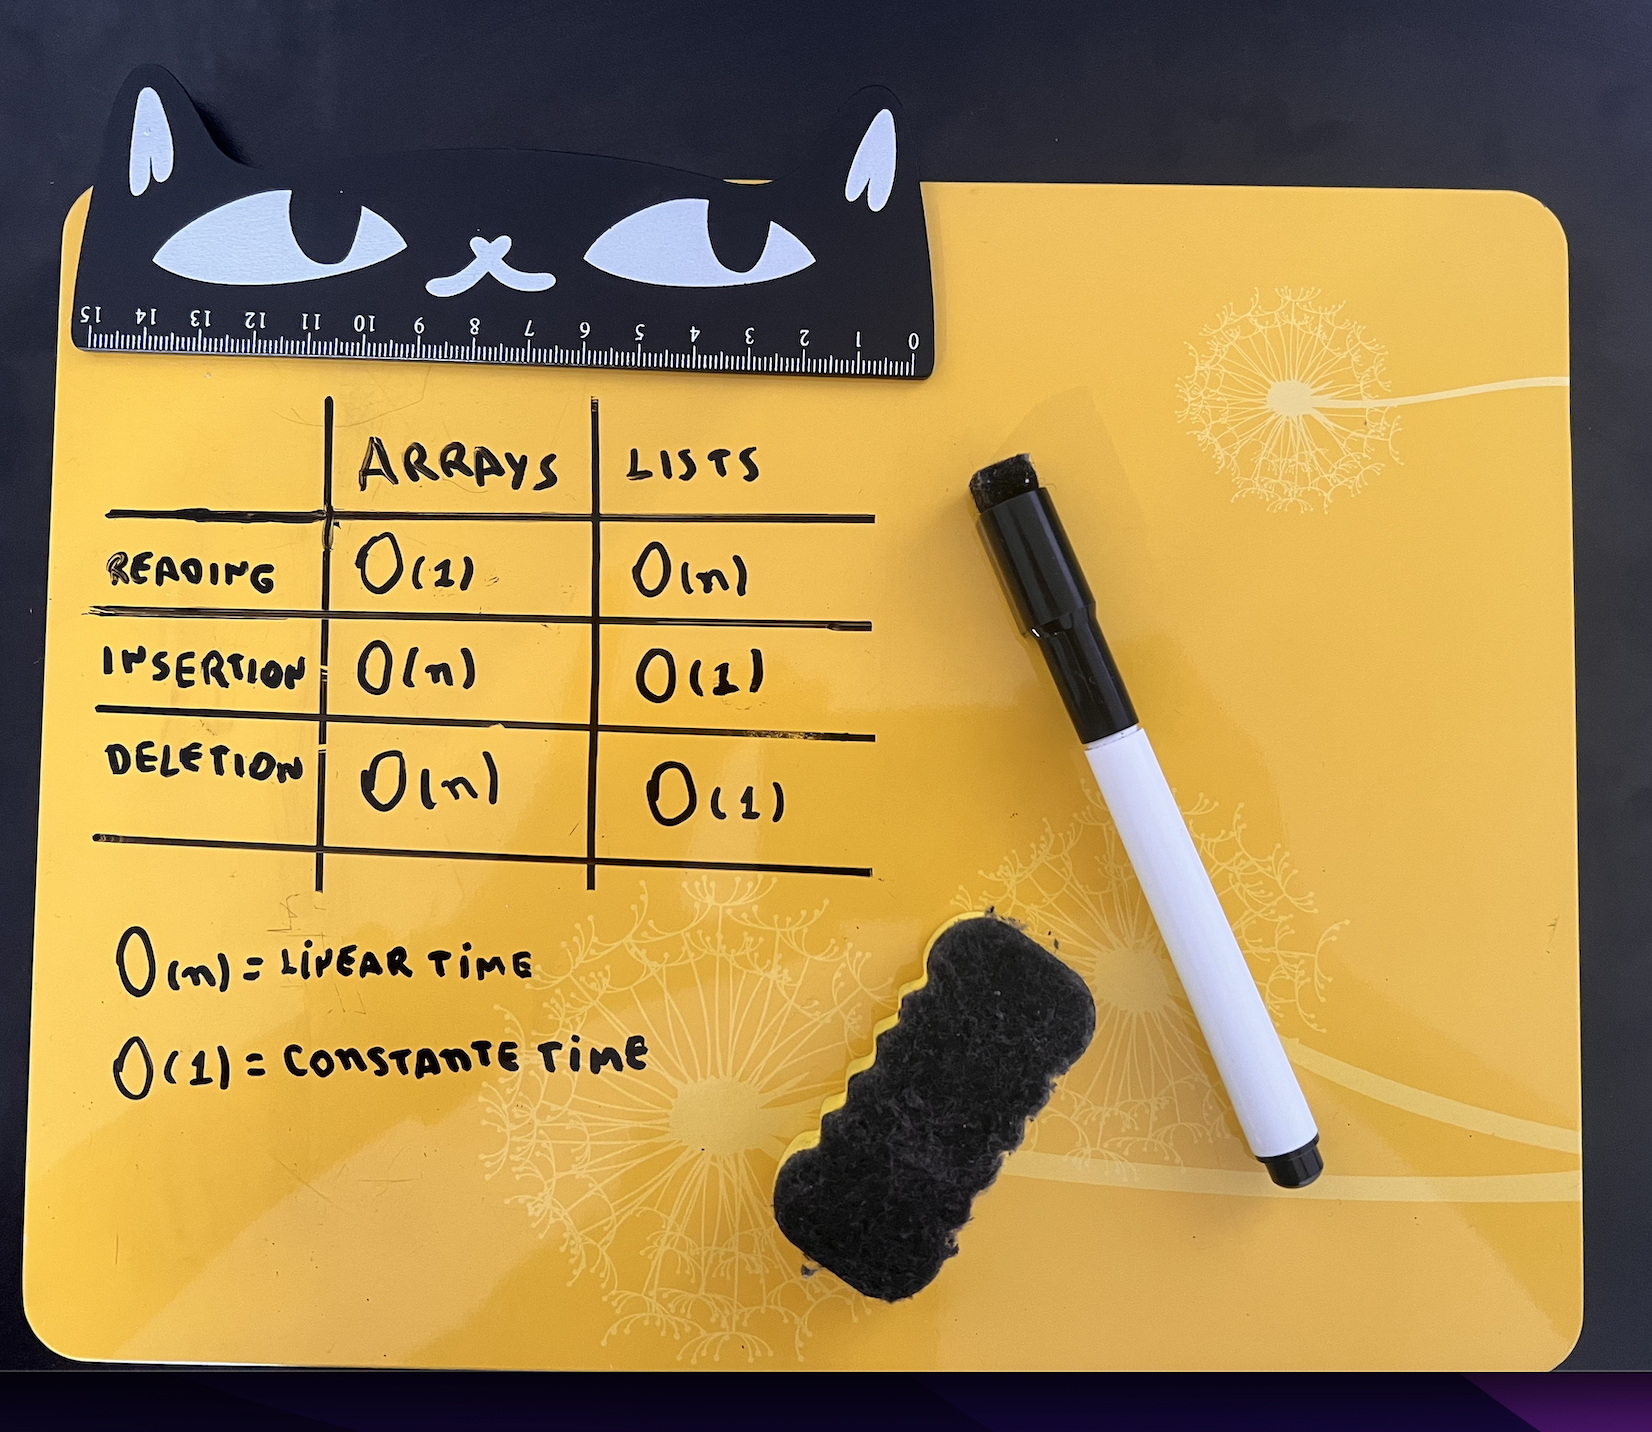 15 14 13 12 11 10 9 8 7 6 5 4 3 2 1 0
ARRAYS LISTS
READING O(1) O(n)
INSERTION O(n) O(1)
DELETION O(n) O(1)
O(n) = LiNEAR TiME
O(1) = CONSTANTE TiME